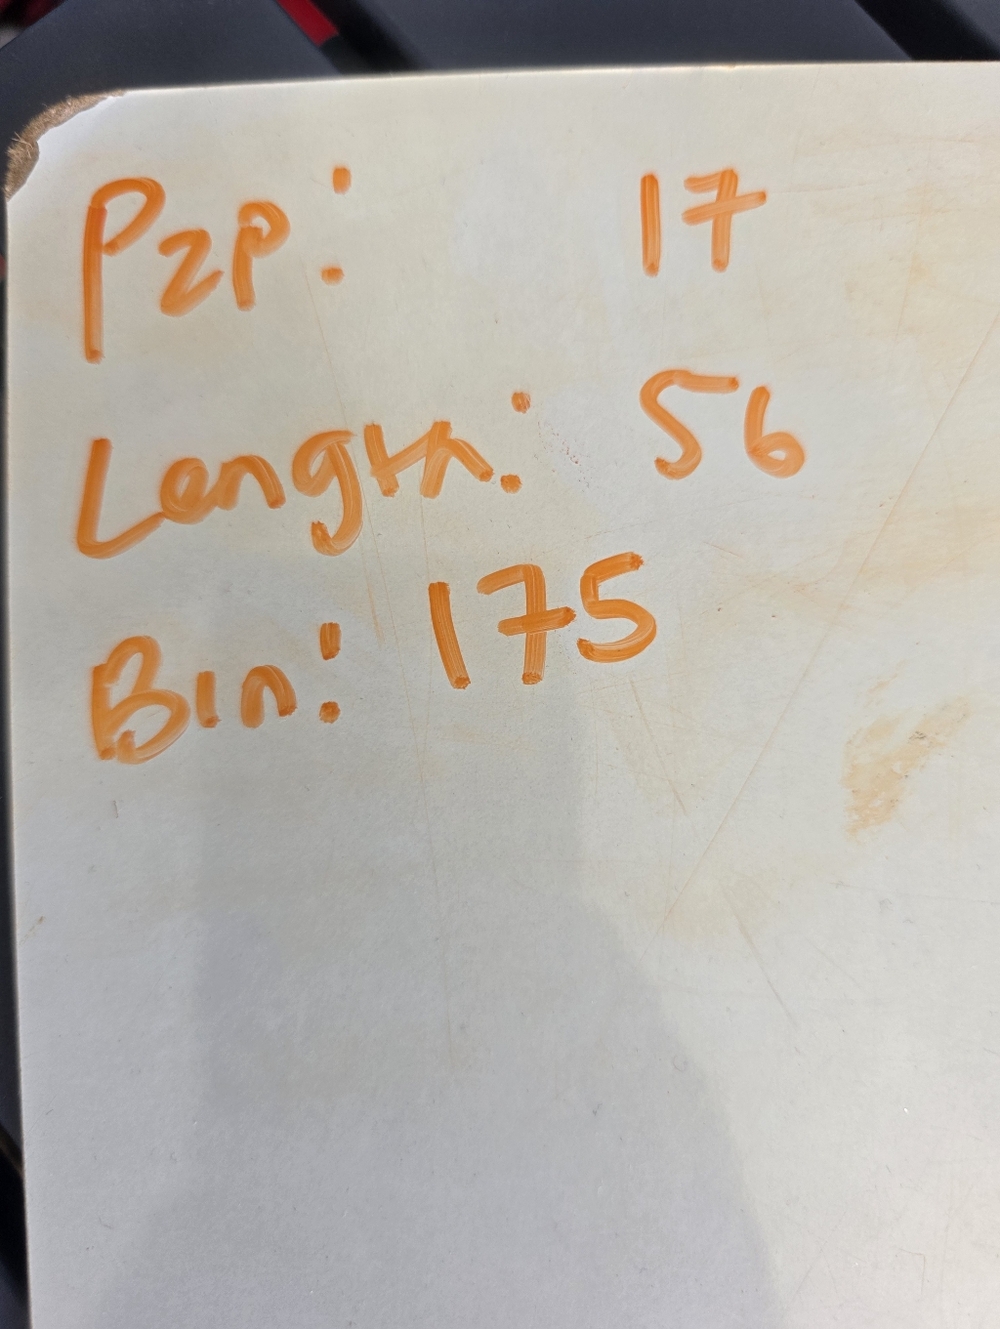 P2P: 17
Length: 56
Bin: 175